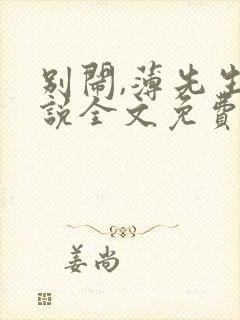 别闹,薄先生
說全文免費
姜尚